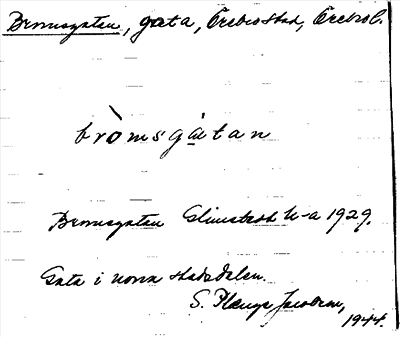 Bromsgatan, gata, Örebro stad, Örebro l.
bròmsgȧtan
Bromsgatan Glimstedt h-a 1929.
Gata i norra stadsdelen.
S. Plenge Jacobsen,
1944.